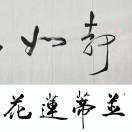 如
並蒂蓮花